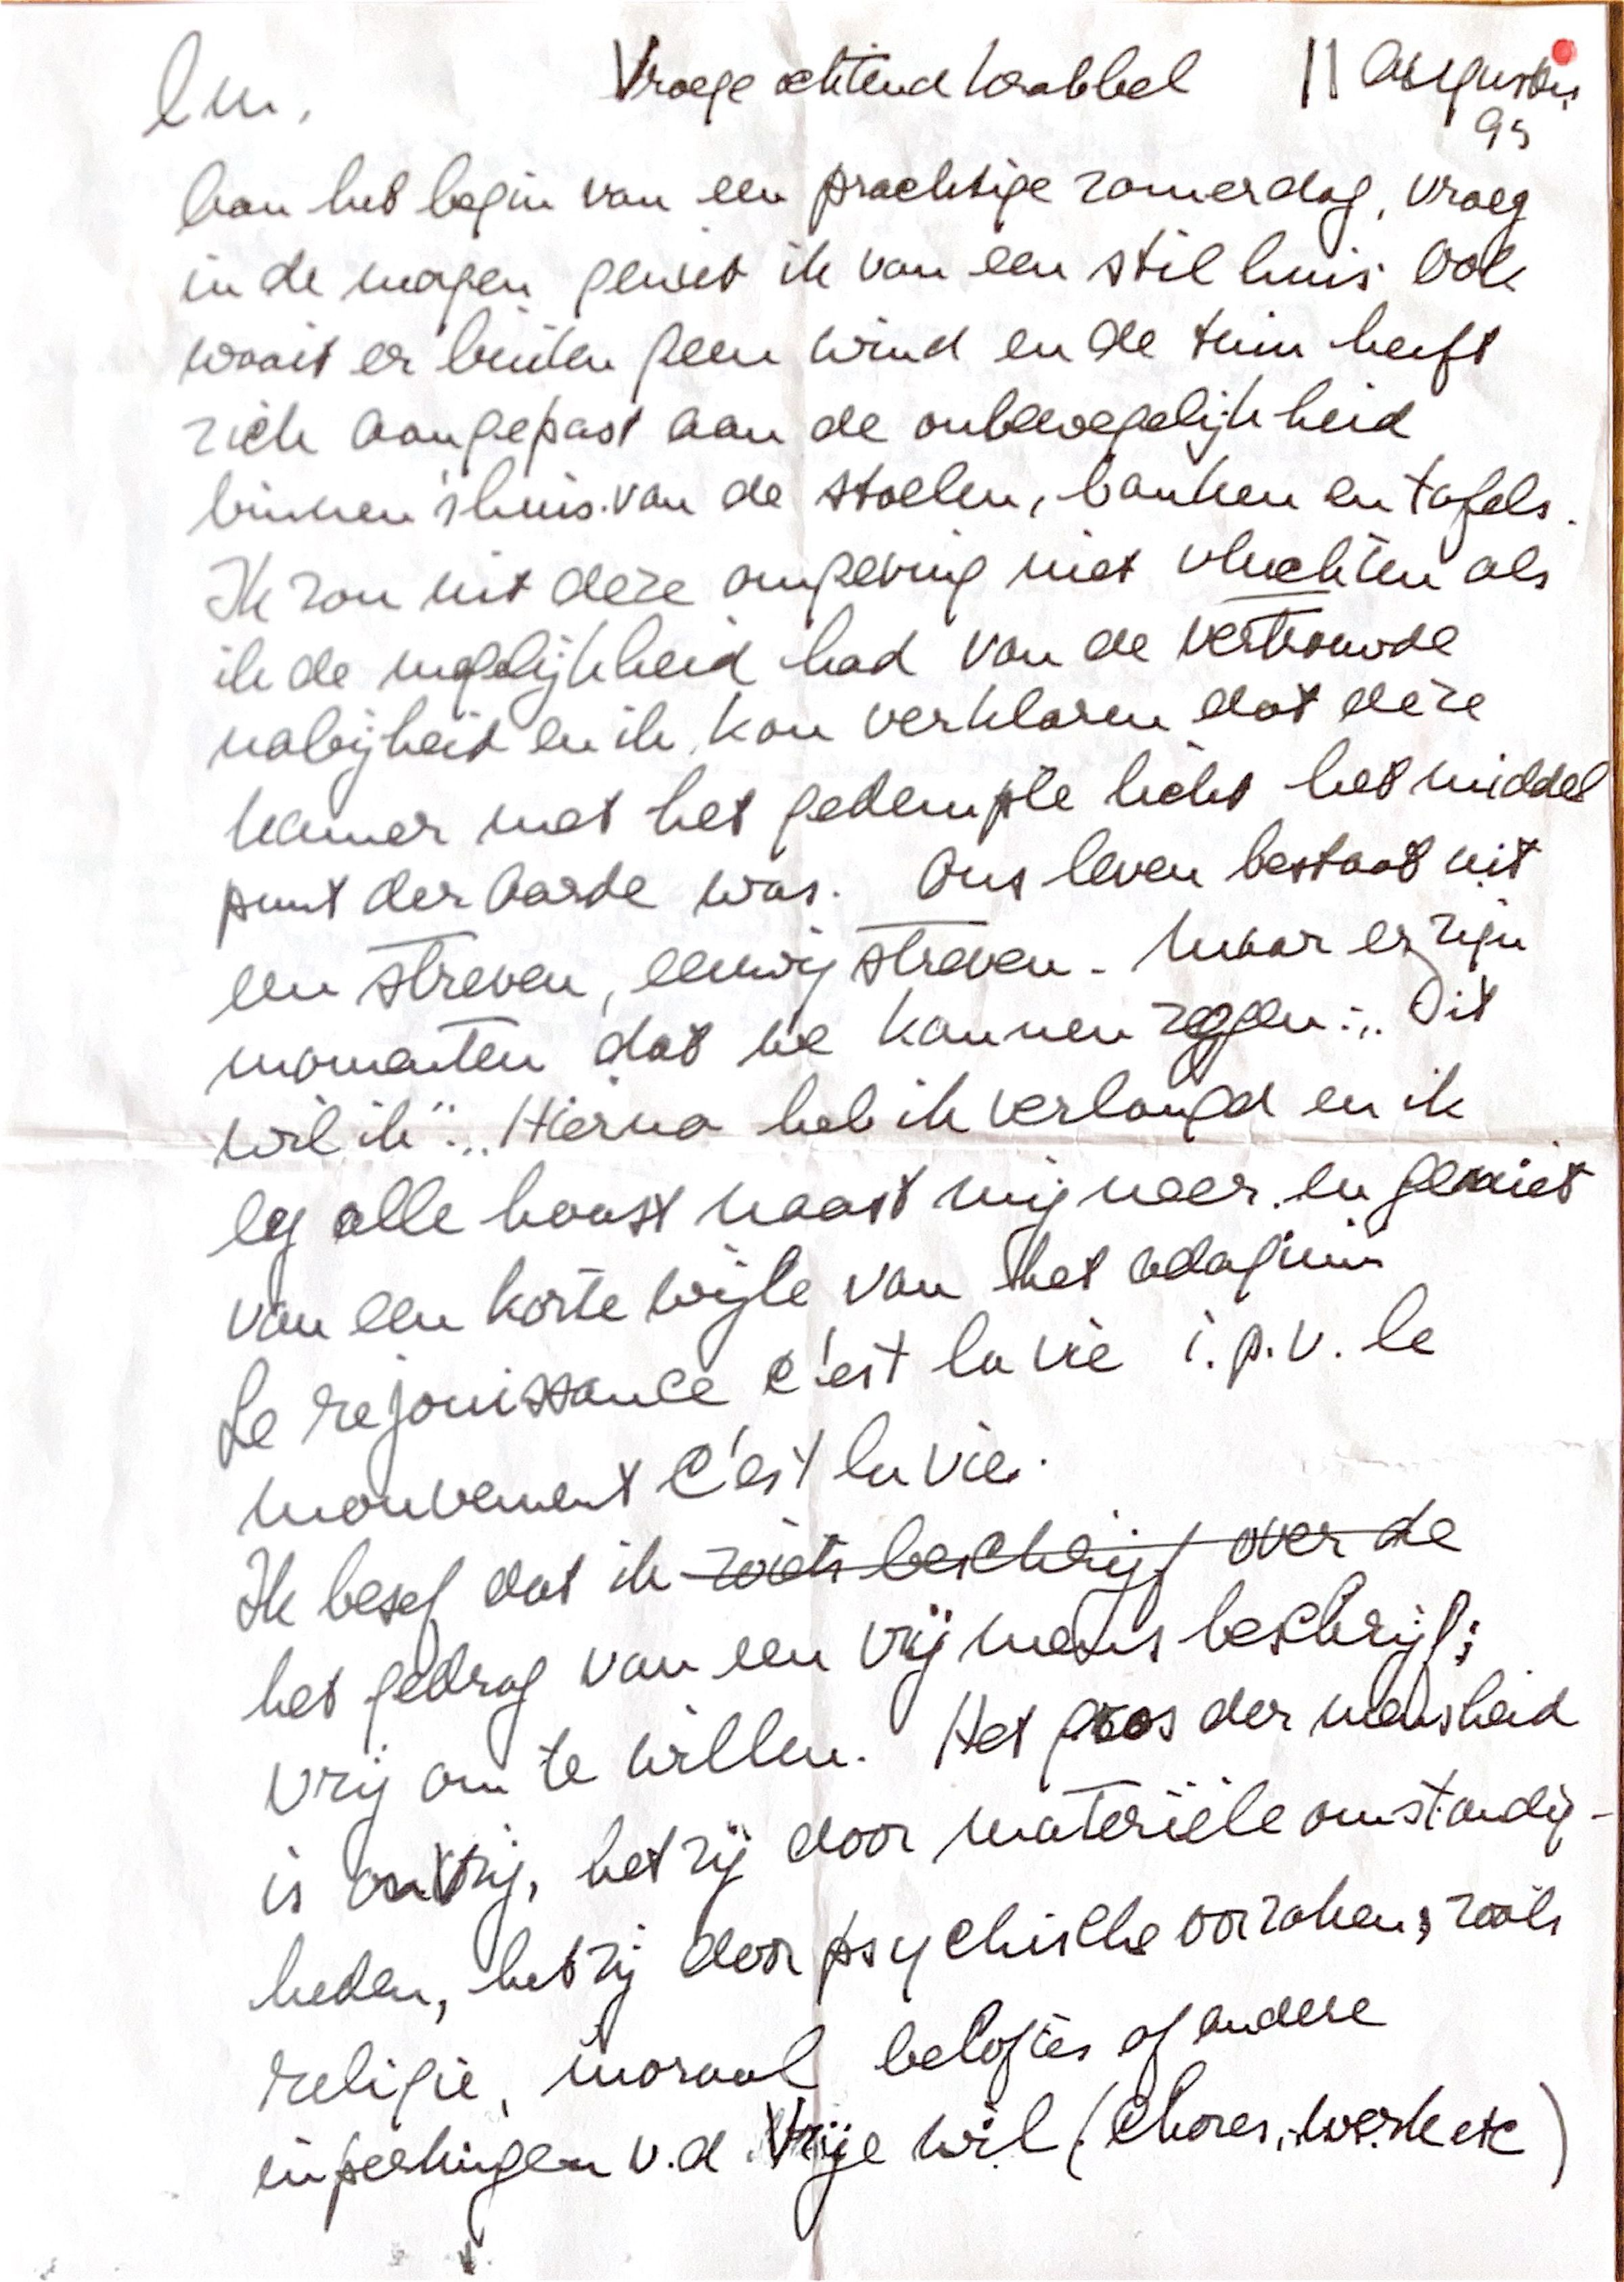 Vroege ochtend krabbel 11 Augustus
95
Aan het begin van een prachtige zomerdag, vroeg
in de morgen geniet ik van een stil huis. Ook
waait er buiten geen wind en de tuin heeft
zich aangepast aan de onbewegelijkheid
binnen 's huis van de stoelen, banken en tafels.
Ik zou uit deze omgeving niet vluchten als
ik de mogelijkheid had van de vertrouwde
nabijheid en ik kan verklaren dat deze
kamer met het gedempte licht het middel
punt der Aarde was. Ons leven bestaat uit
een streven, eeuwig streven - maar er zijn
momenten dat we kunnen zeggen: „Dit
wil ik" „Hierna heb ik verlangd en ik
leg alle haast naast mij neer en geniet
van een korte wijle van het adagium
Le rejouissance c'est la vie i.p.v. le
mouvement c'est la vie.
Ik besef dat ik zoiets beschrijf over de
het gedrag van een vrij mens beschrijf;
vrij om te willen. Het gros der mensheid
is onvrij, hetzij door materiële omstandig-
heden, hetzij door psychische oorzaken, zoals
religie, moraal beloftes of andere
inperkingen v.d. Vrije wil (Chores, werk etc)